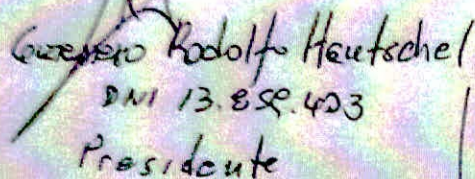 Rodolfo Hentschel
DNI 13.859.403
Presidente